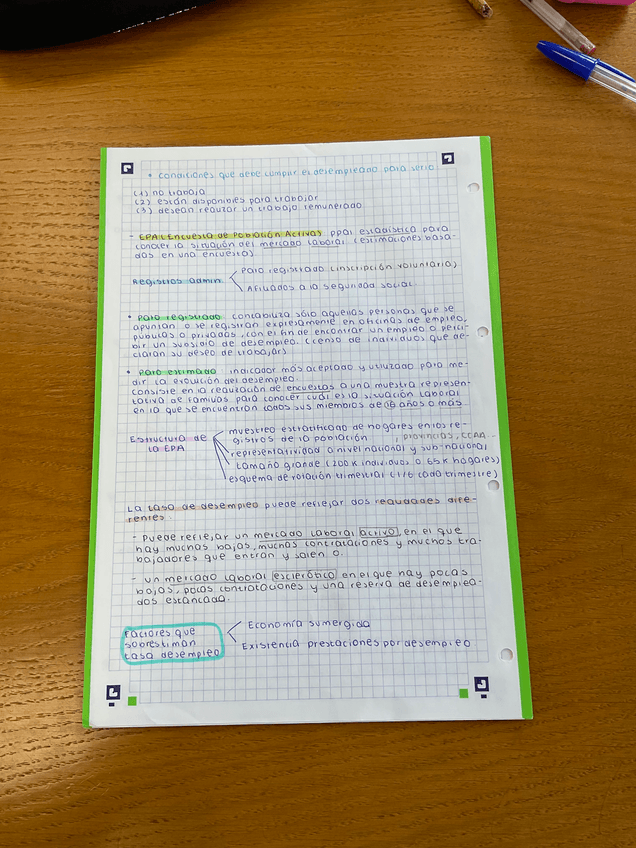 • Condiciones que debe cumplir el desempleado para serlo
(1) no trabaja
(2) están disponibles para trabajar
(3) desean realizar un trabajo remunerado
- EPA (Encuesta de Población Activa) ppal estadística para
conocer la situación del mercado laboral (estimaciones basa-
das en una encuesta)
Registros admin.
Paro registrado (inscripción voluntaria)
Afiliados a la seguridad social
• Paro registrado contabiliza sólo aquellas personas que se
apuntan o se registran expresamente en oficinas de empleo,
públicas o privadas, con el fin de encontrar un empleo o perci-
bir un subsidio de desempleo. (censo de individuos que de-
claran su deseo de trabajar)
• Paro estimado indicador más aceptado y utilizado para me-
dir la evolución del desempleo.
Consiste en la realización de encuestas a una muestra represen-
tativa de familias para conocer cuál es la situación laboral
en la que se encuentran todos sus miembros de 16 años o más
Estructura de
la EPA
muestreo estratificado de hogares en los re-
gistros de la población
, provincias, CCAA...
representatividad a nivel nacional y sub-nacional
tamaño grande (200K individuos o 65K hogares)
esquema de rotación trimestral (1/6 cada trimestre)
La tasa de desempleo puede reflejar dos realidades dife-
rentes.
- Puede reflejar un mercado laboral activo, en el que
hay muchas bajas, muchas contrataciones y muchos tra-
bajadores que entran y salen o.
- un mercado laboral esclerótico en el que hay pocas
bajas, pocas contrataciones y una reserva de desemplea-
dos estancada.
Factores que
sobrestiman
tasa desempleo
Economía sumergida
Existencia prestaciones por desempleo